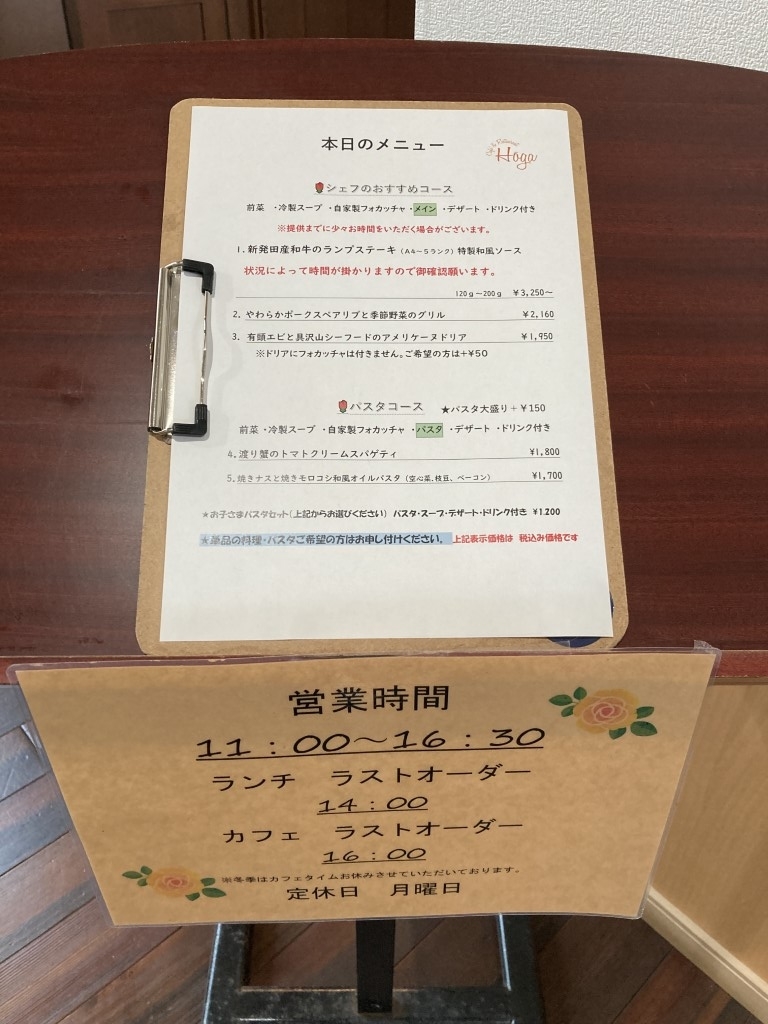 本日のメニュー
Cafe & Restaurant
Hoga
シェフのおすすめコース
前菜 ・冷製スープ ・自家製フォカッチャ ・メイン ・デザート ・ドリンク付き
※提供までに少々お時間をいただく場合がございます。
1. 新発田産和牛のランプステーキ (A4～5ランク) 特製和風ソース
状況によって時間が掛かりますので御確認願います。
120g～200g ¥3,250～
2. やわらかポークスペアリブと季節野菜のグリル ¥2,160
3. 有頭エビと具沢山シーフードのアメリケーヌドリア ¥1,950
※ドリアにフォカッチャは付きません。ご希望の方は+¥50
パスタコース ★パスタ大盛り+¥150
前菜 ・冷製スープ ・自家製フォカッチャ ・パスタ ・デザート ・ドリンク付き
4. 渡り蟹のトマトクリームスパゲティ ¥1,800
5. 焼きナスと焼きモロコシ和風オイルパスタ (空心菜、枝豆、ベーコン) ¥1,700
★お子さまパスタセット(上記からお選びください) パスタ・スープ・デザート・ドリンク付き ¥1,200
★単品の料理・パスタご希望の方はお申し付けください。 上記表示価格は 税込み価格です
営業時間
11：00～16：30
ランチ ラストオーダー
14：00
カフェ ラストオーダー
16：00
※冬季はカフェタイムお休みさせていただいております。
定休日 月曜日